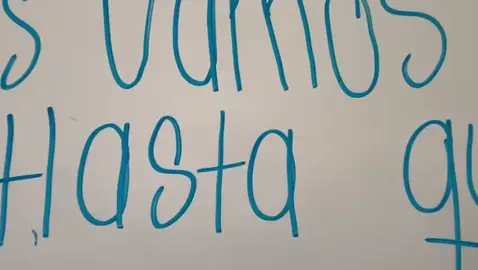 s vamos
Hasta qu